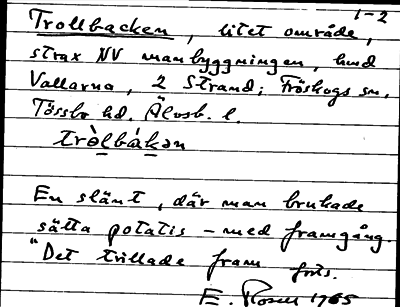 1-2
Trollbacken, litet område,
strax NV manbyggningen, hmd
Vallarna, 2 Strand; Fröskogs sn,
Tössbo hd. Älvsb. l.
tròlbákən
En slänt, där man brukade
sätta potatis - med framgång.
"Det trillade fram frts.
E. Rosen 1965